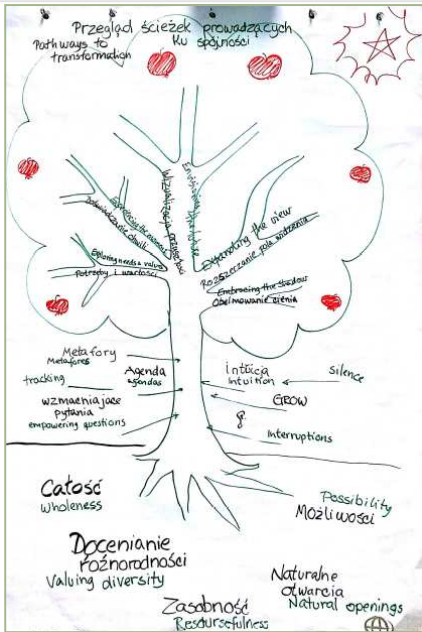 Przegląd ścieżek prowadzących
Ku spójności
Pathways to
transformation
Wizualizacja przyszłości
Envisioning the future
Experiencing the moment
Doświadczanie chwili
Expanding the view
Rozszerzanie pola widzenia
Exploring needs & values
Potrzeby i wartości
Embracing the shadow
Obejmowanie cienia
Metafory
Metafores
tracking
Agenda
agendas
wzmacniające
pytania
empowering questions
intuicja
intuition
Silence
GROW
Interruptions
Całość
Wholeness
Possibility
Możliwości
Docenianie
różnorodności
Valuing diversity
Naturalne
otwarcia
Natural openings
Zasobność
Resoursefulness